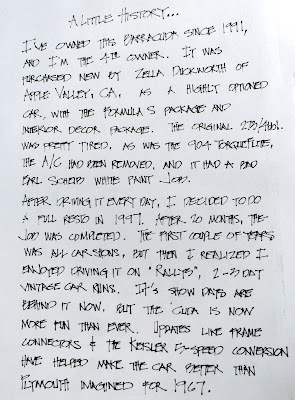 A LITTLE HISTORY...
I'VE OWNED THIS BARRACUDA SINCE 1991,
AND I'M THE 4TH OWNER. IT WAS
PURCHASED NEW BY ZELLA DUCKWORTH OF
APPLE VALLEY, CA. AS A HIGHLY OPTIONED
CAR, WITH THE FORMULA S PACKAGE AND
INTERIOR DECOR PACKAGE. THE ORIGINAL 273/4bbl.
WAS PRETTY TIRED, AS WAS THE 904 TORQUEFLITE,
THE A/C HAD BEEN REMOVED, AND IT HAD A BAD
EARL SCHEIB WHITE PAINT JOB.
AFTER DRIVING IT EVERY DAY, I DECIDED TO DO
A FULL RESTO IN 1997. AFTER 20 MONTHS, THE
JOB WAS COMPLETED. THE FIRST COUPLE OF YEARS
WAS ALL CAR SHOWS, BUT THEN I REALIZED I
ENJOYED DRIVING IT ON "RALLYS", 2-3 DAY
VINTAGE CAR RUNS. IT'S SHOW DAYS ARE
BEHIND IT NOW, BUT THE 'CUDA IS NOW
MORE FUN THAN EVER. UPDATES LIKE FRAME
CONNECTORS & THE KEISLER 5-SPEED CONVERSION
HAVE HELPED MAKE THE CAR BETTER THAN
PLYMOUTH IMAGINED FOR 1967.